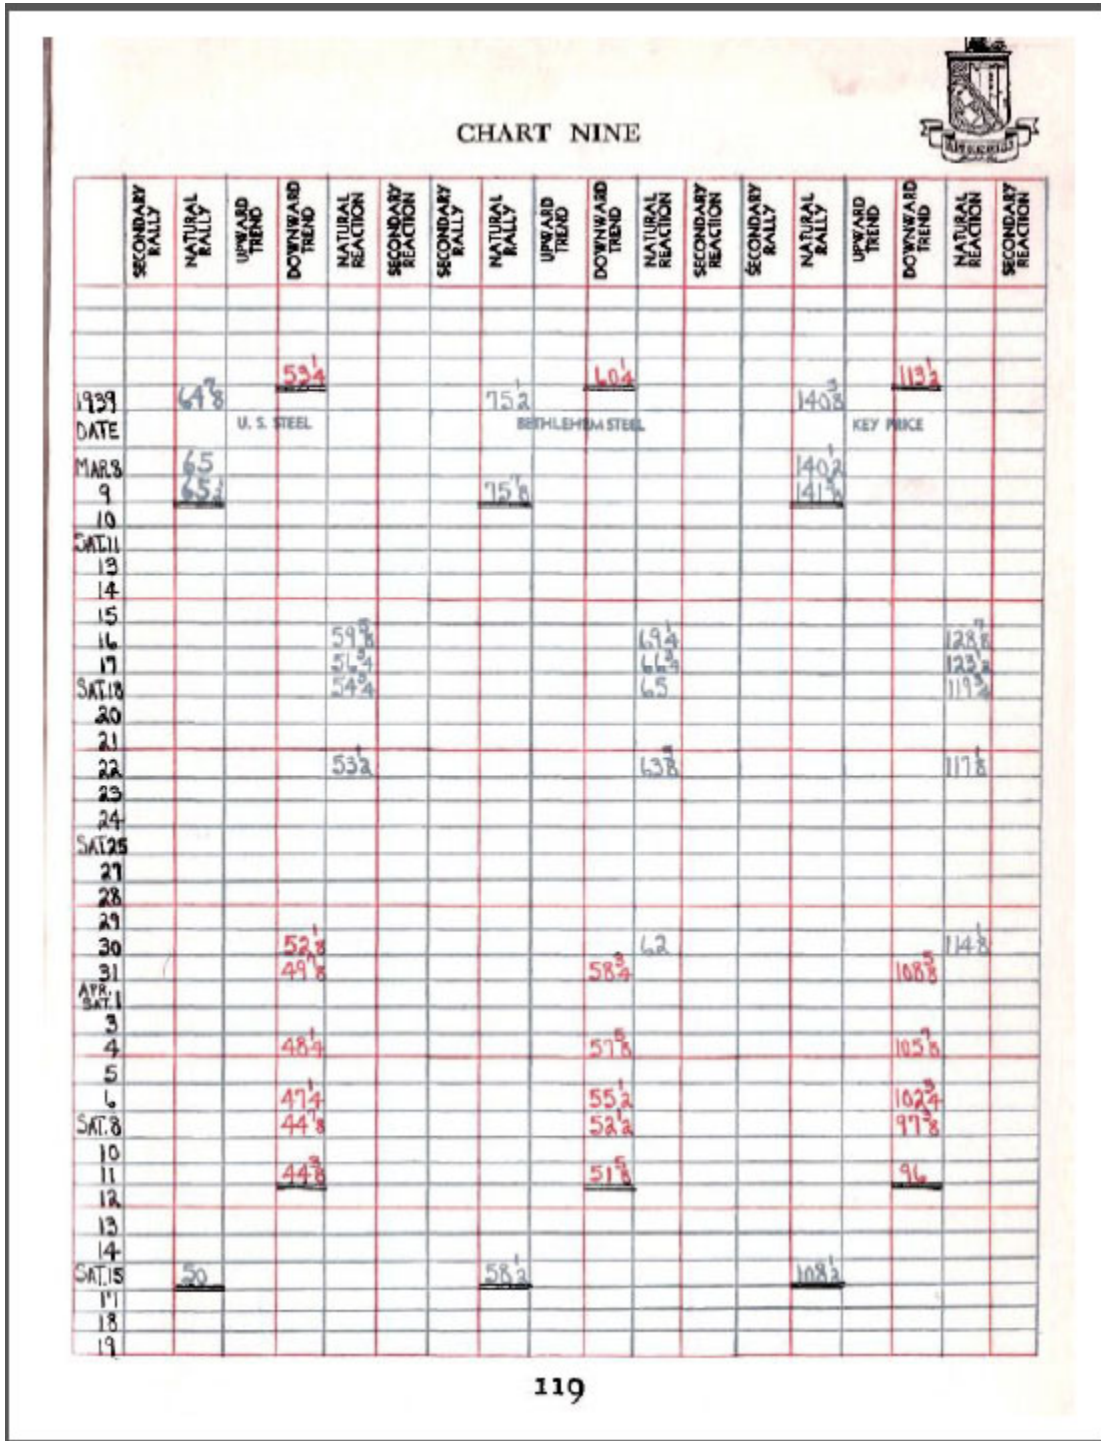 CHART NINE
SECONDARY RALLY NATURAL RALLY UPWARD TREND DOWNWARD TREND NATURAL REACTION SECONDARY REACTION SECONDARY RALLY NATURAL RALLY UPWARD TREND DOWNWARD TREND NATURAL REACTION SECONDARY REACTION SECONDARY RALLY NATURAL RALLY UPWARD TREND DOWNWARD TREND NATURAL REACTION SECONDARY REACTION
53 1/4 60 1/4 113 1/2
1939 64 7/8 75 1/2 140 5/8
DATE U. S. STEEL BETHLEHEM STEEL KEY PRICE
MAR.8 65 140 1/2
9 65 1/2 75 7/8 141 3/8
10
SAT.11
13
14
15
16 59 5/8 69 1/4 128 7/8
17 56 3/4 66 3/4 123 1/2
SAT.18 54 3/4 65 119 3/4
20
21
22 53 1/2 63 5/8 117 1/8
23
24
SAT.25
27
28
29
30 52 1/8 62 114 1/8
31 49 7/8 58 3/4 108 5/8
APR. SAT.1
3
4 48 1/4 57 5/8 105 7/8
5
6 47 1/4 55 1/2 102 3/4
SAT.8 44 7/8 52 1/2 97 3/8
10
11 44 3/8 51 5/8 96
12
13
14
SAT.15 50 58 1/2 108 1/2
17
18
19
119